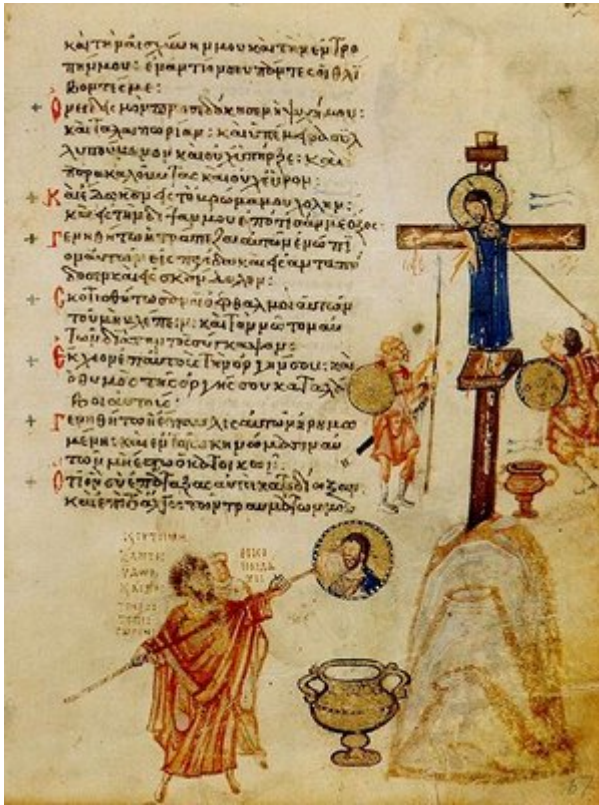 καὶ τὴν αἰσχύνην μου καὶ τὴν ἐντρο
πήν μου· ἐναντίον σου πάντες οἱ θλί
βοντές με:
Ὀνειδισμὸν προσεδόκησεν ἡ ψυχή μου·
καὶ ταλαιπωρίαν· καὶ ὑπέμεινα συλ
λυπούμενον καὶ οὐχ ὑπῆρξε· καὶ
παρακαλοῦντας καὶ οὐχ εὗρον:
Καὶ ἔδωκαν εἰς τὸ βρῶμά μου χολήν·
καὶ εἰς τὴν δίψαν μου ἐπότισάν με ὄξος:
Γενηθήτω ἡ τράπεζα αὐτῶν ἐνώπι
ον αὐτῶν εἰς παγίδα καὶ εἰς ἀνταπό
δοσιν καὶ εἰς σκάνδαλον:
Σκοτισθήτωσαν οἱ ὀφθαλμοὶ αὐτῶν
τοῦ μὴ βλέπειν· καὶ τὸν νῶτον αὐ
τῶν διὰ παντὸς σύγκαμψον:
Ἔκχεον ἐπ' αὐτοὺς τὴν ὀργήν σου· καὶ
ὁ θυμὸς τῆς ὀργῆς σου καταλά
βοι αὐτούς:
Γενηθήτω ἡ ἔπαυλις αὐτῶν ἠρημω
μένη· καὶ ἐν τοῖς σκηνώμασιν αὐ
τῶν μὴ ἔστω ὁ κατοικῶν:
Ὅτι ὃν σὺ ἐπάταξας αὐτοὶ κατεδίωξαν·
καὶ ἐπὶ τὸ ἄλγος τῶν τραυμάτων μου
67